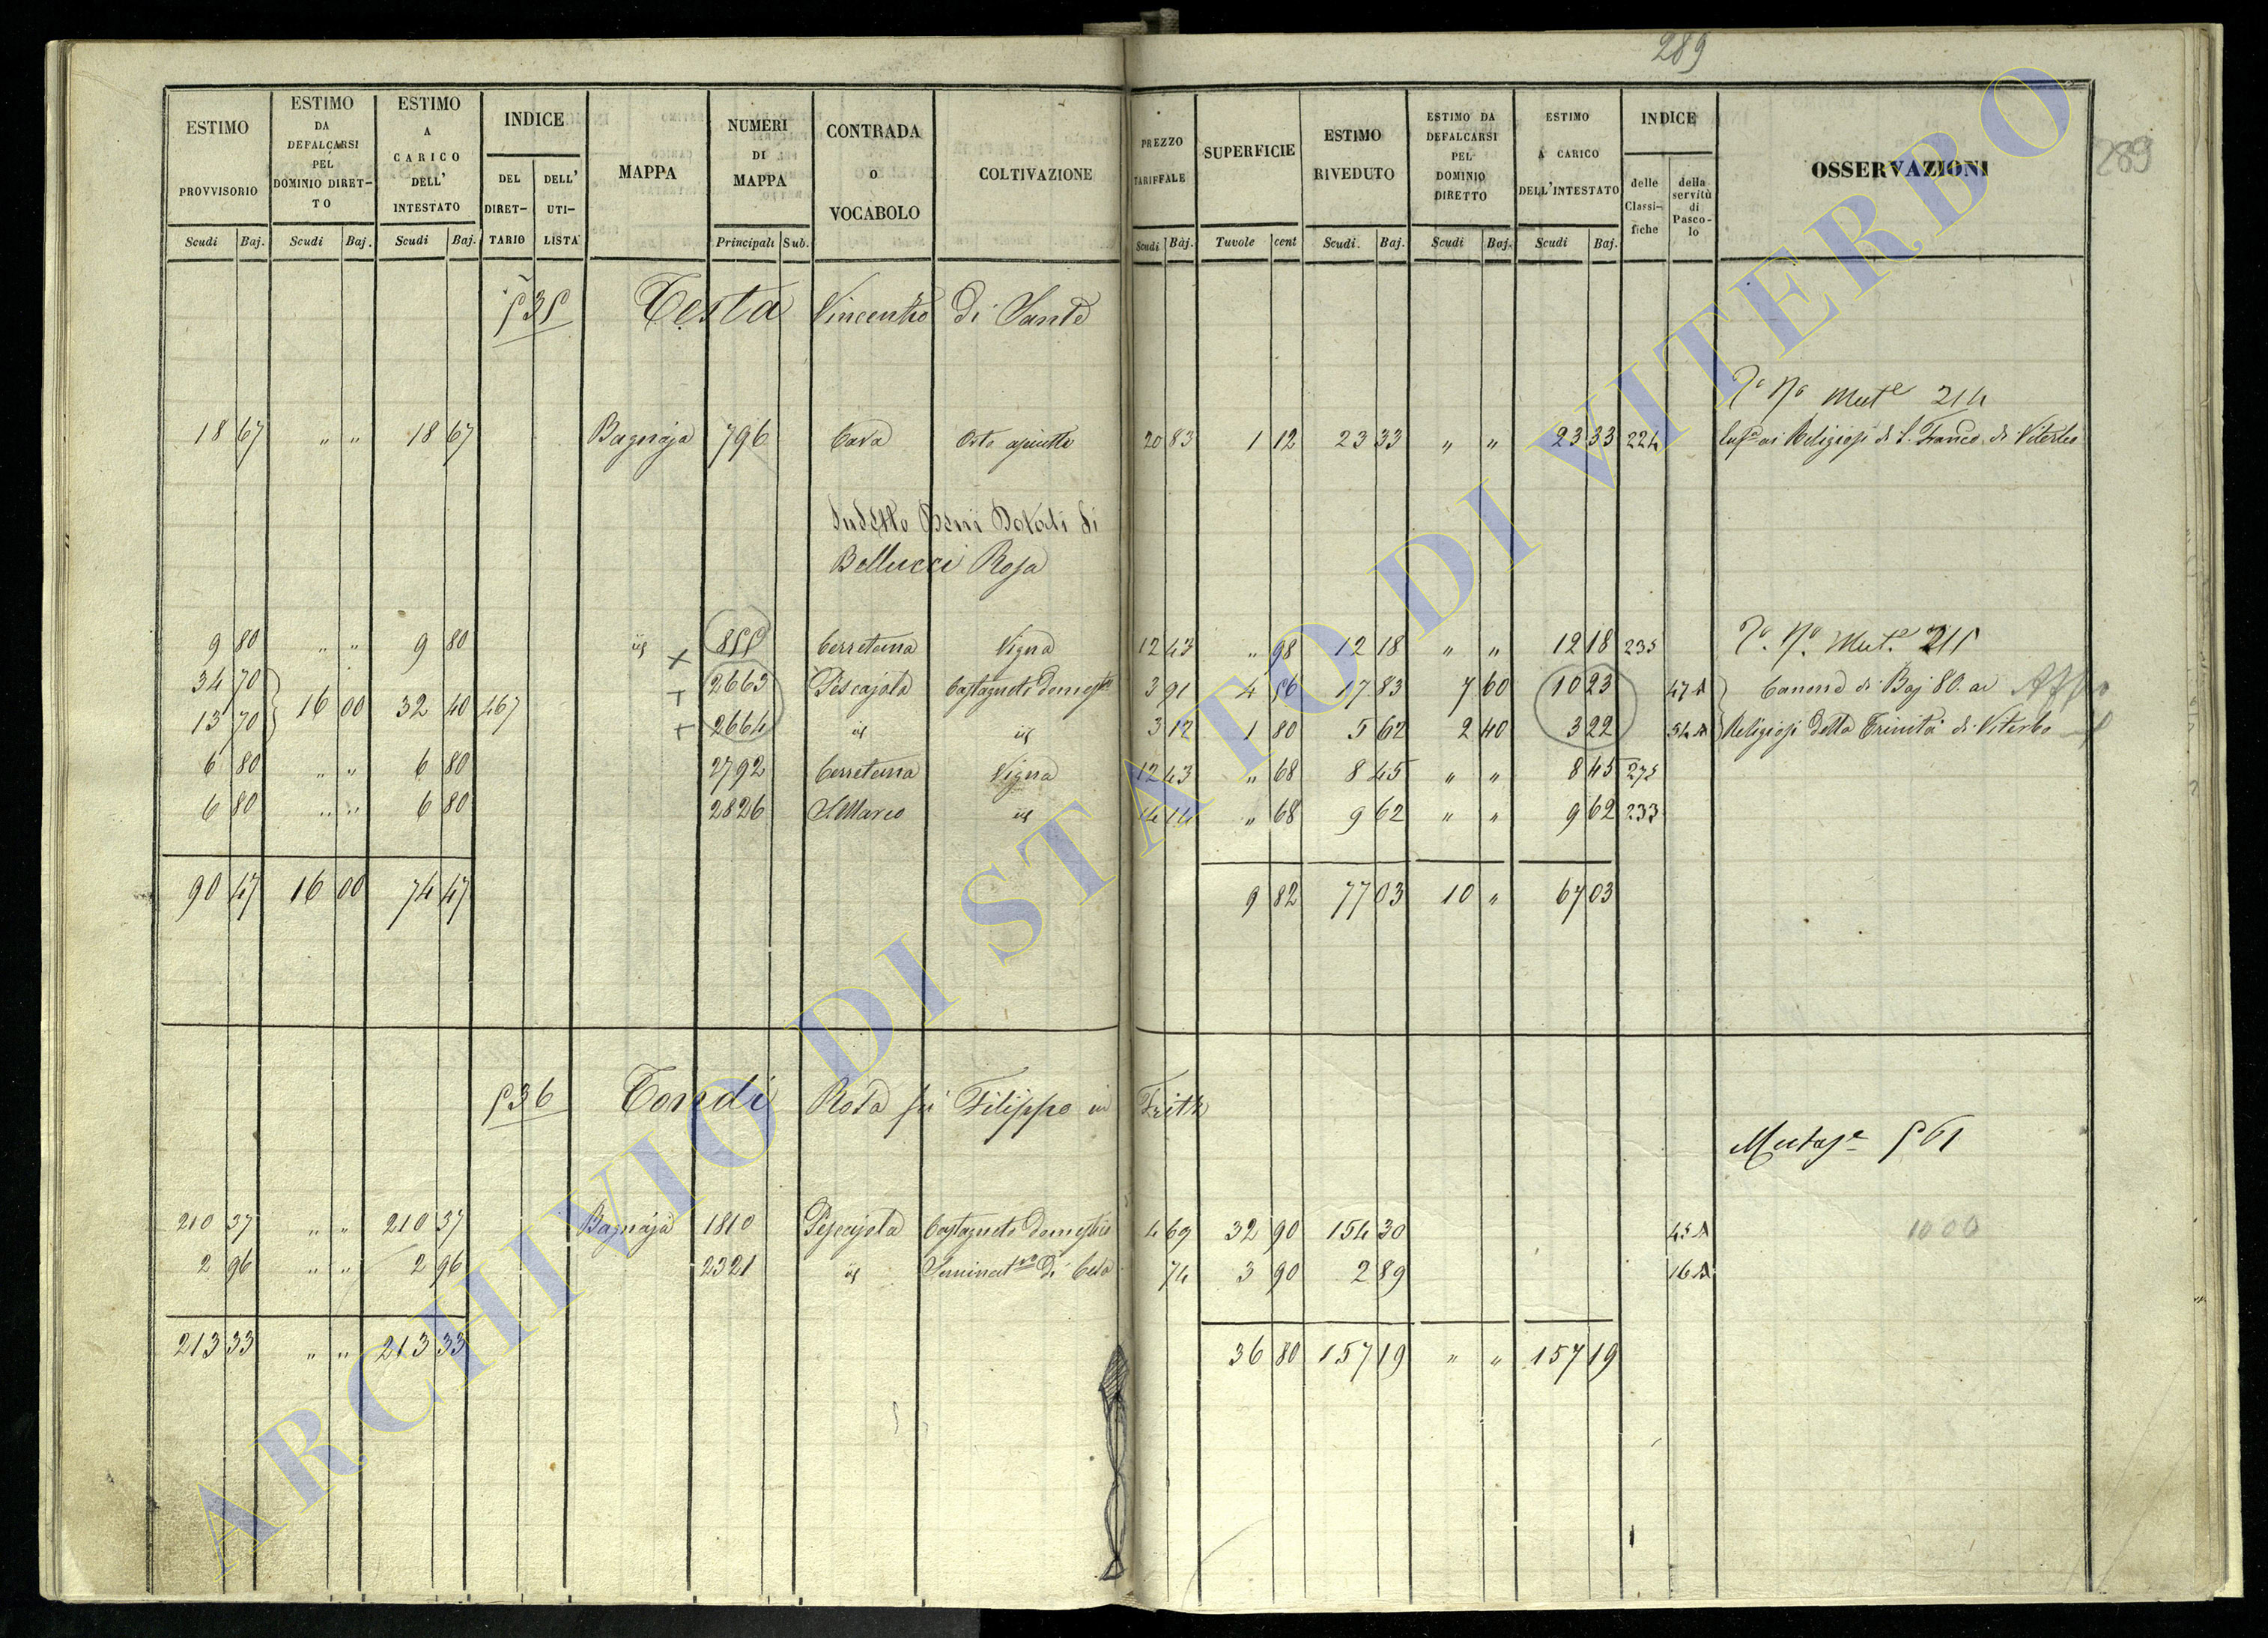 289
289
ESTIMO PROVVISORIO Scudi Baj.
ESTIMO DA DEFALCARSI PEL DOMINIO DIRET-TO Scudi Baj.
ESTIMO A CARICO DELL' INTESTATO Scudi Baj.
INDICE DEL DIRET-TARIO DELL' UTI-LISTA
MAPPA
NUMERI DI MAPPA Principali Sub.
CONTRADA O VOCABOLO
COLTIVAZIONE
PREZZO TARIFFALE Scudi Baj.
SUPERFICIE Tavole cent
ESTIMO RIVEDUTO Scudi. Baj.
ESTIMO DA DEFALCARSI PEL DOMINIO DIRETTO Scudi Baj.
ESTIMO A CARICO DELL'INTESTATO Scudi Baj.
INDICE delle Classi-fiche della servitù di Pasco-lo
OSSERVAZIONI
535 Testa Vincenzo di Sante
Mut.e 214
18 67 " " 18 67 Bagnaja 796 Cava Orto asciutto 20 83 1 12 23 33 " " 23 33 224 ai Religiosi di S. Franco di Viterbo
Sudetto Beni Dotali di
Bellucci Rosa
9 80 " " 9 80 id x 855 Cerretana Vigna 12 43 " 98 12 18 " " 12 18 235 Mut.e 215
34 70 } 16 00 32 40 467 + 2663 Pescajola Castagneto domest.co 3 91 4 56 17 83 7 60 10 23 47 A } Canone di Baj 80. ai
13 70 + 2664 id id 3 12 1 80 5 62 2 40 3 22 54 A Religiosi della Trinità di Viterbo
6 80 " " 6 80 2792 Cerretana Vigna 12 43 " 68 8 45 " " 8 45 275
6 80 " " 6 80 2826 S. Marco id 14 14 " 68 9 62 " " 9 62 233
90 47 16 00 74 47 9 82 77 03 10 " 67 03
536 Tondi Rosa fu Filippo in
Mutaz.e 561
210 37 " " 210 37 Bagnaja 1810 Pescajola Castagneto domestico 4 69 32 90 154 30 45 A 1000
2 96 " " 2 96 2321 id Seminat.vo di 74 3 90 2 89 16 A
213 33 " " 213 33 36 80 157 19 " " 157 19
ARCHIVIO DI STATO DI VITERBO